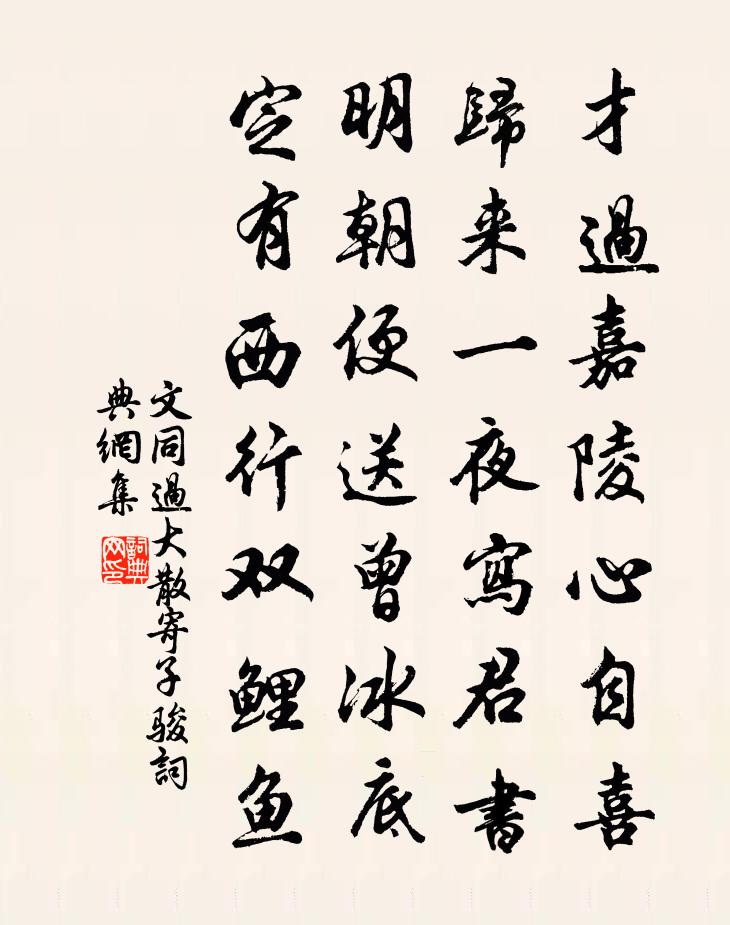 才過嘉陵心自喜
歸来一夜寫君書
明朝便送曾冰底
定有西行双鲤鱼
文同過大散寄子駿詞
典網集
詞典
网印